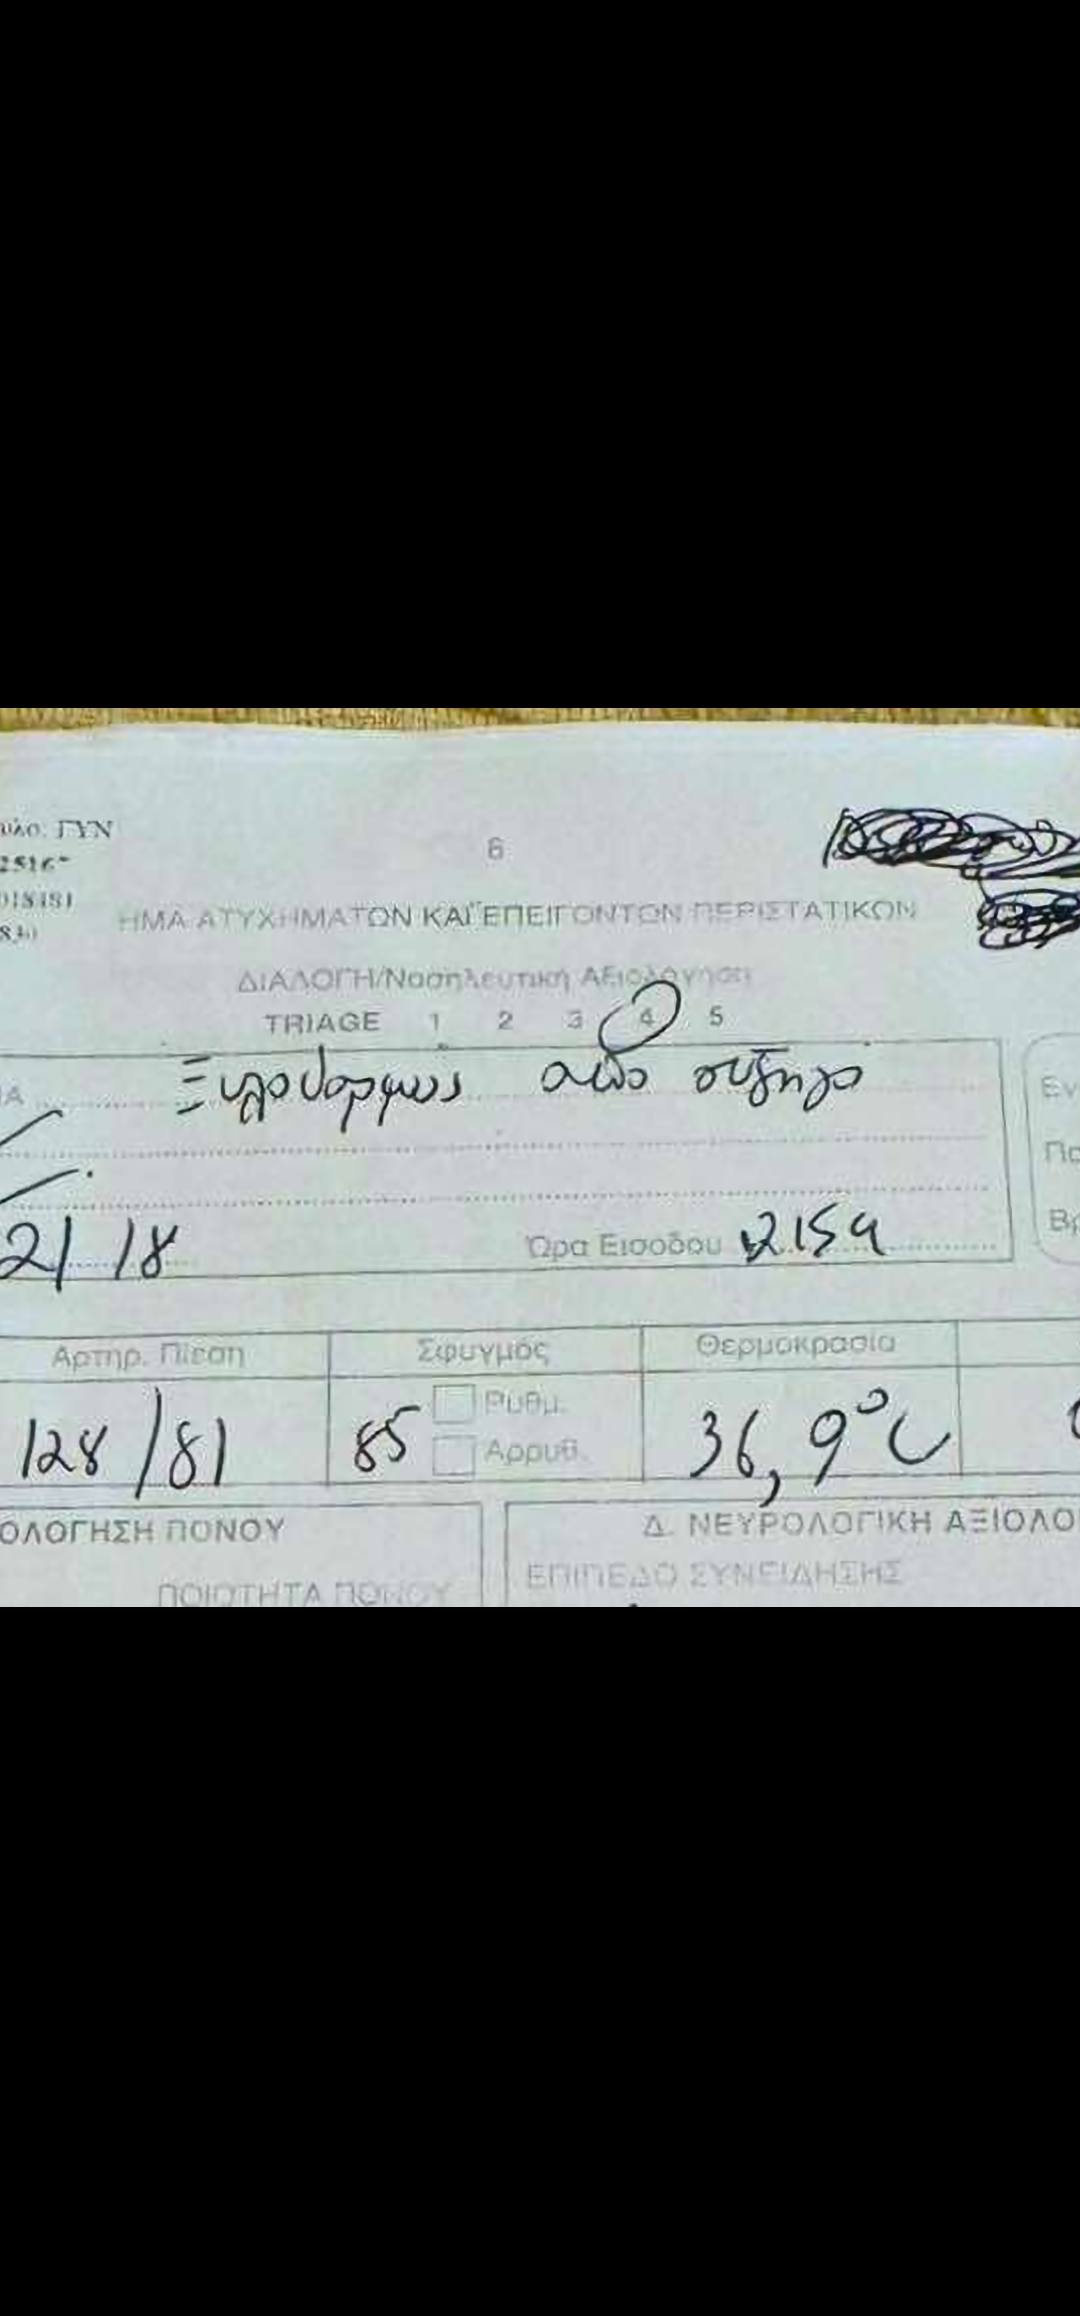 ύλο: ΓΥΝ
2516
018481
830
6
ΗΜΑ ΑΤΥΧΗΜΑΤΩΝ ΚΑΙ ΕΠΕΙΓΟΝΤΩΝ ΠΕΡΙΣΤΑΤΙΚΩΝ
ΔΙΑΛΟΓΗ/Νοσηλευτική Αξιολόγηση
TRIAGE 1 2 3 4 5
ΙΑ Ξυλοδαρμός από σύζυγο
Εν
Πα
Βρ
2/ 18 Ώρα Εισόδου 2159
Αρτηρ. Πίεση Σφυγμός Θερμοκρασία
128/81 85 Ρυθμ. Αρρυθ. 36,9°C
ΟΛΟΓΗΣΗ ΠΟΝΟΥ Δ. ΝΕΥΡΟΛΟΓΙΚΗ ΑΞΙΟΛΟ
ΠΟΙΟΤΗΤΑ ΠΟΝΟΥ ΕΠΙΠΕΔΟ ΣΥΝΕΙΔΗΣΗΣ